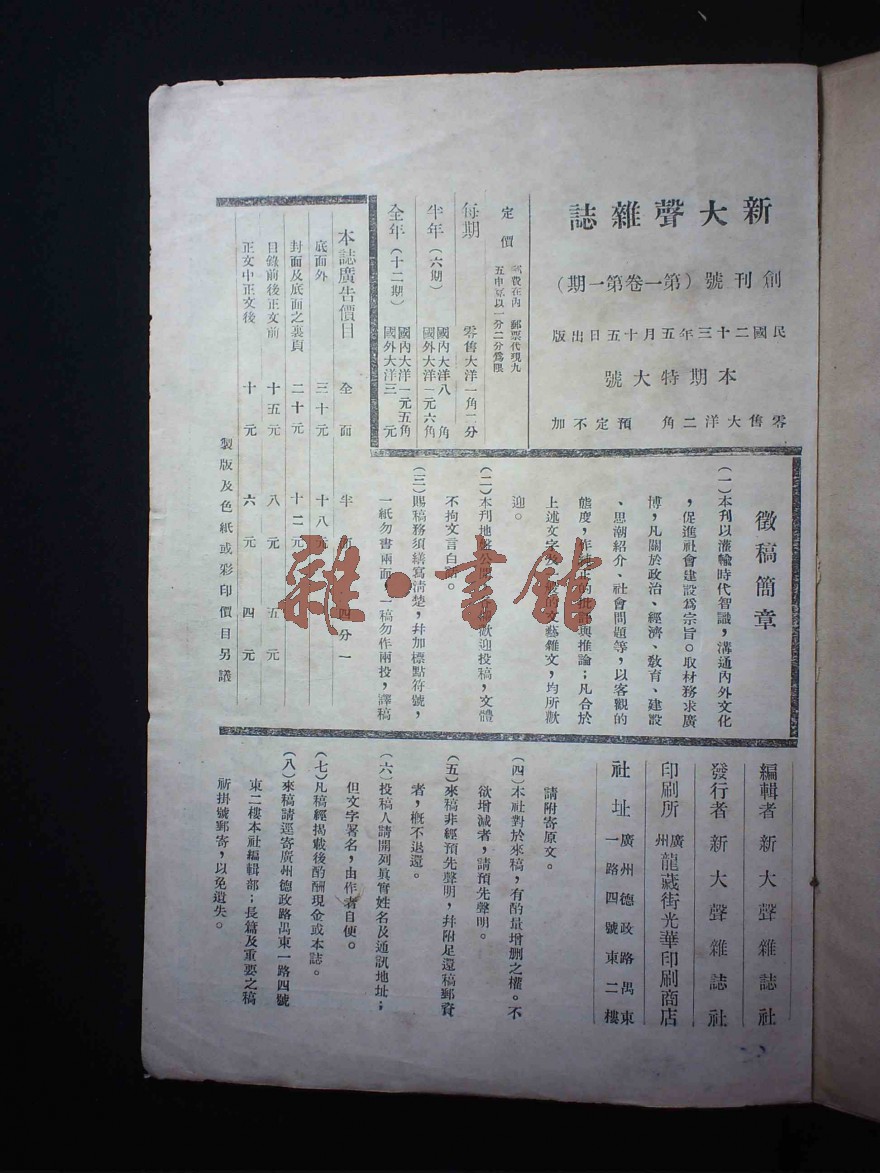 新大聲雜誌
創刊號（第一卷第一期）
民國二十三年五月十五日出版
本期特大號
零售大洋二角 預定不加
定價 郵費在內 郵票代現九五申算以一分二分爲限
每期 零售大洋一角二分
半年（六期） 國內大洋八角 國外大洋一元六角
全年（十二期） 國內大洋一元五角 國外大洋三元
本誌廣告價目 全面 半面 四分一
底面外 三十元 十八元
封面及底面之裏頁 二十元 十二元
目錄前後正文前 十五元 八元 五元
正文中正文後 十元 六元 四元
製版及色紙或彩印價目另議
徵稿簡章
（一）本刊以灌輸時代智識，溝通內外文化
，促進社會建設爲宗旨。取材務求廣
博，凡關於政治、經濟、教育、建設
、思潮紹介、社會問題等，以客觀的
態度，作純正的批評與推論；凡合於
上述文字及一般的文藝雜文，均所歡
迎。
（二）本刊地盤公開，歡迎投稿，文體
不拘文言白話。
（三）賜稿務須繕寫清楚，幷加標點符號，
一紙勿書兩面，一稿勿作兩投，譯稿
請附寄原文。
（四）本社對於來稿，有酌量增删之權。不
欲增減者，請預先聲明。
（五）來稿非經預先聲明，幷附足還稿郵資
者，概不退還。
（六）投稿人請開列眞實姓名及通訊地址；
但文字署名，由作者自便。
（七）凡稿經揭載後酌酬現金或本誌。
（八）來稿請逕寄廣州德政路禺東一路四號
東二樓本社編輯部；長篇及重要之稿
祈掛號郵寄，以免遺失。
編輯者 新大聲雜誌社
發行者 新大聲雜誌社
印刷所 廣州龍藏街光華印刷商店
社址 廣州德政路禺東一路四號東二樓
雜·書館